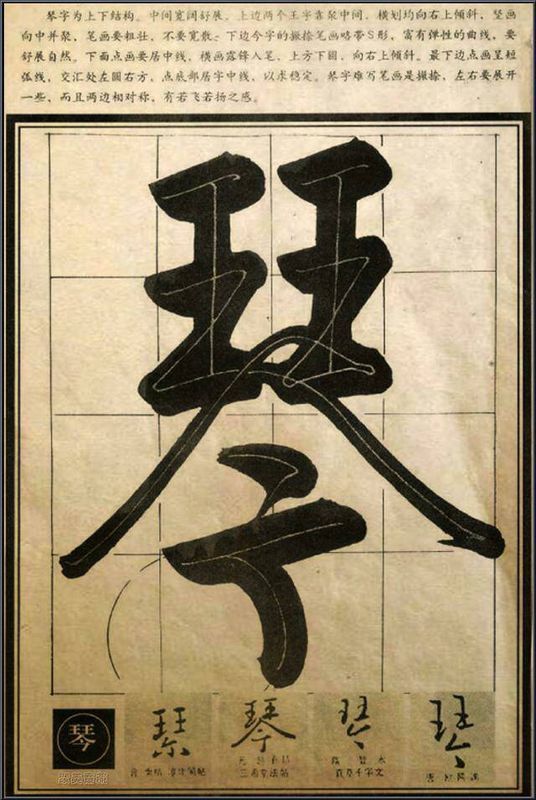 琴字为上下结构。中间宽阔舒展，上边两个王字靠聚中间，横划均向右上倾斜，竖画
向中并聚，笔画要粗壮，不要宽散。下边今字的撇捺笔画略带S形，富有弹性的曲线，要
舒展自然。下面点画要居中线，横画露锋入笔，上方下圆，向右上倾斜。最下边点画呈短
弧线，交汇处左圆右方，点底部居字中线，以求稳定。琴字难写笔画是撇捺，左右要展开
一些，而且两边相对称，有若飞若扬之感。
琴
琴
琴
琴
琴
琴
真草千字文